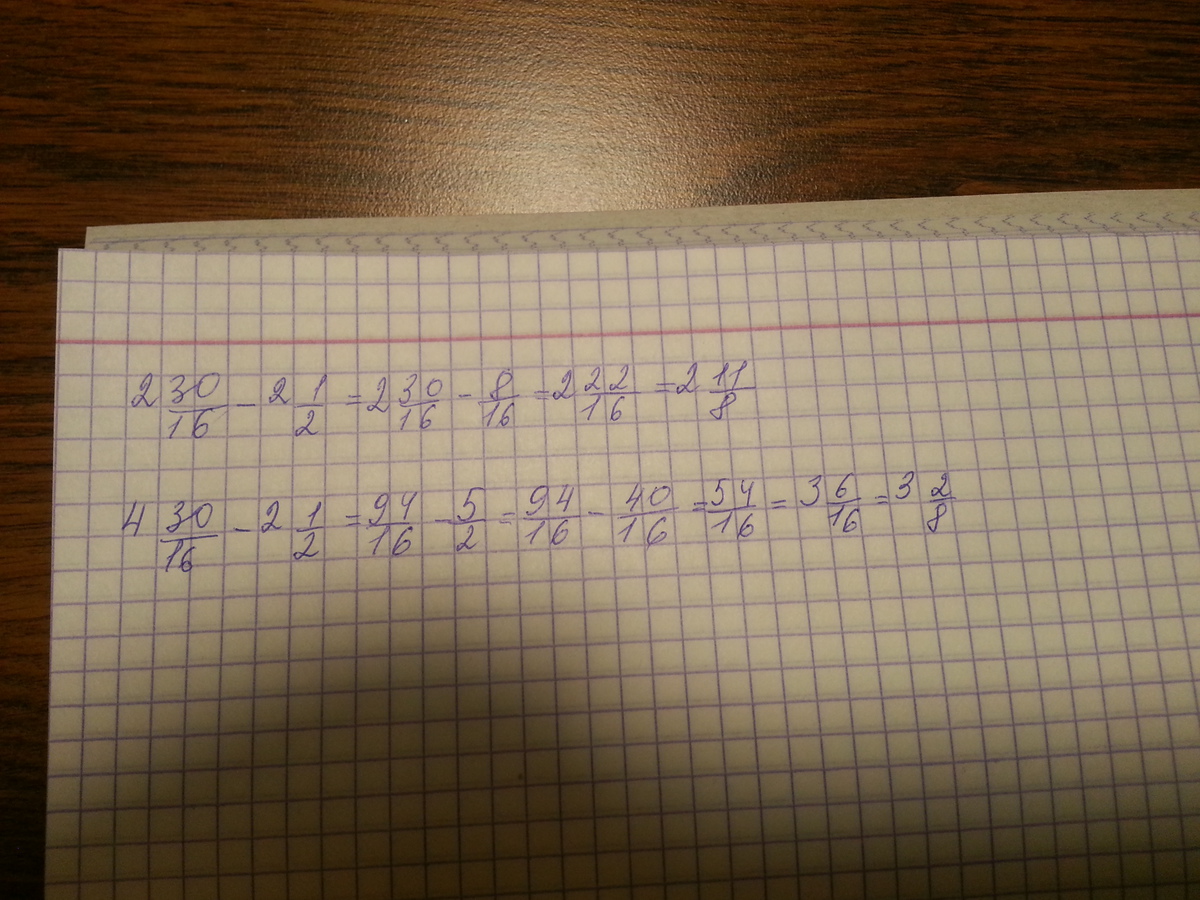 2 30/16 - 2 1/2 = 2 30/16 - 8/16 = 2 22/16 = 2 11/8
4 30/16 - 2 1/2 = 94/16 - 5/2 = 94/16 - 40/16 = 54/16 = 3 6/16 = 3 2/8